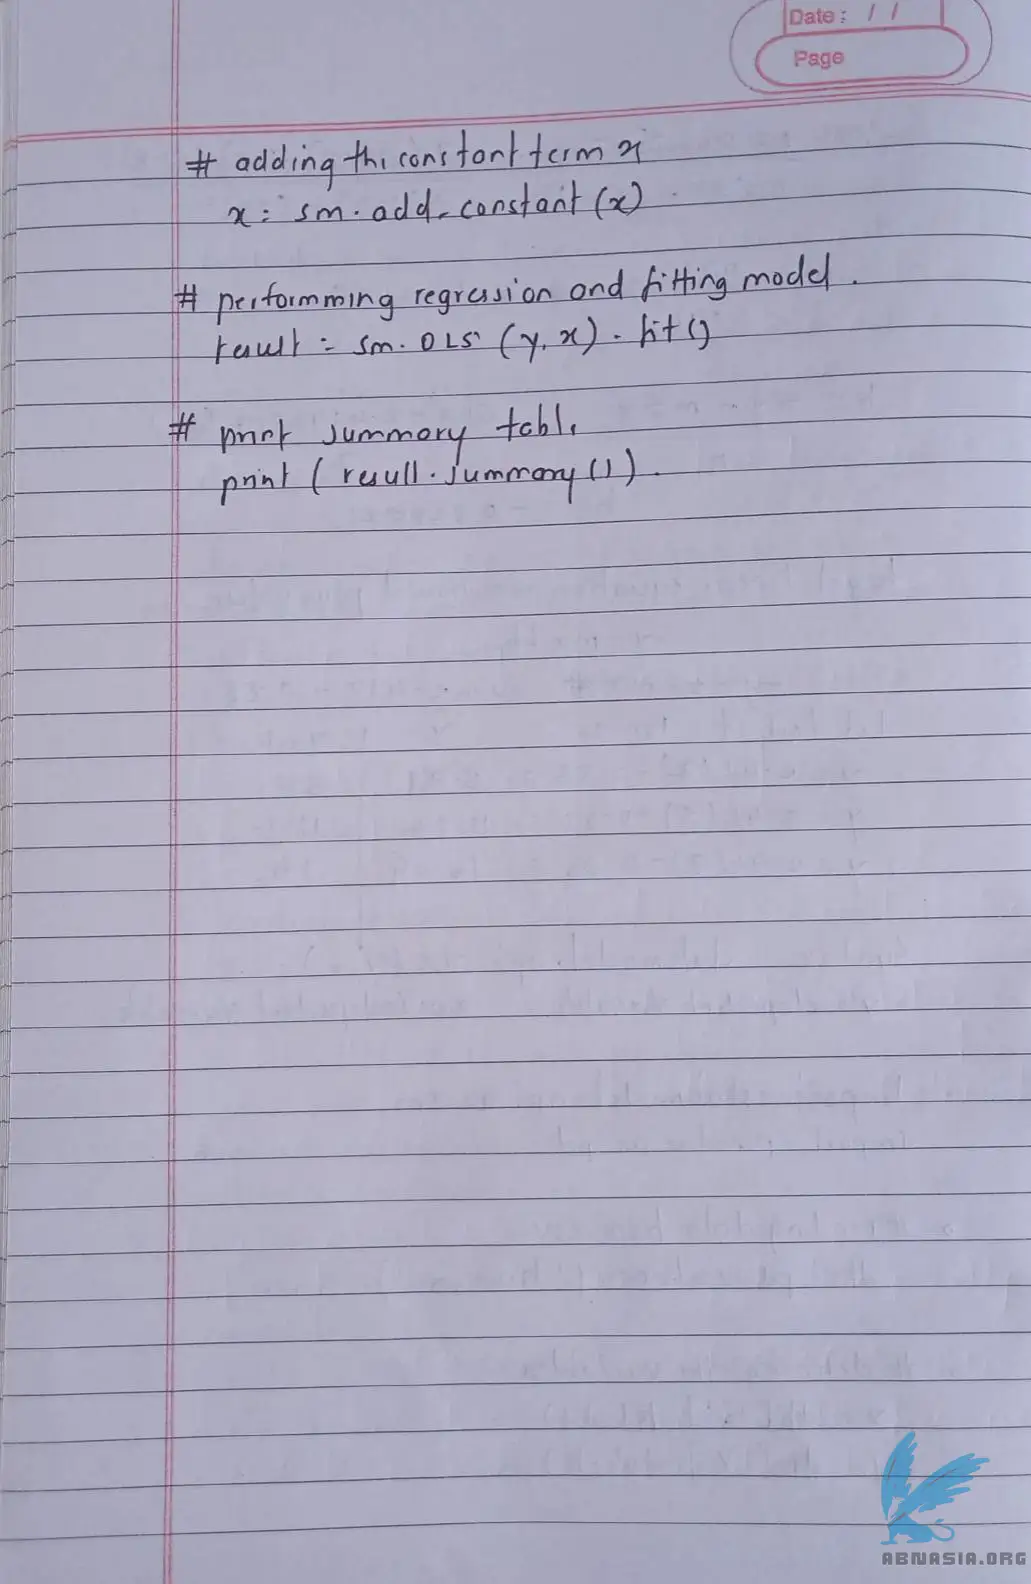 Date : / /
Page
# adding the constant term x
x = sm.add_constant (x)
# performming regression and fitting model.
result = sm.OLS (y, x).fit()
# print summary table
print ( result.summary ()).
ABNASIA.ORG